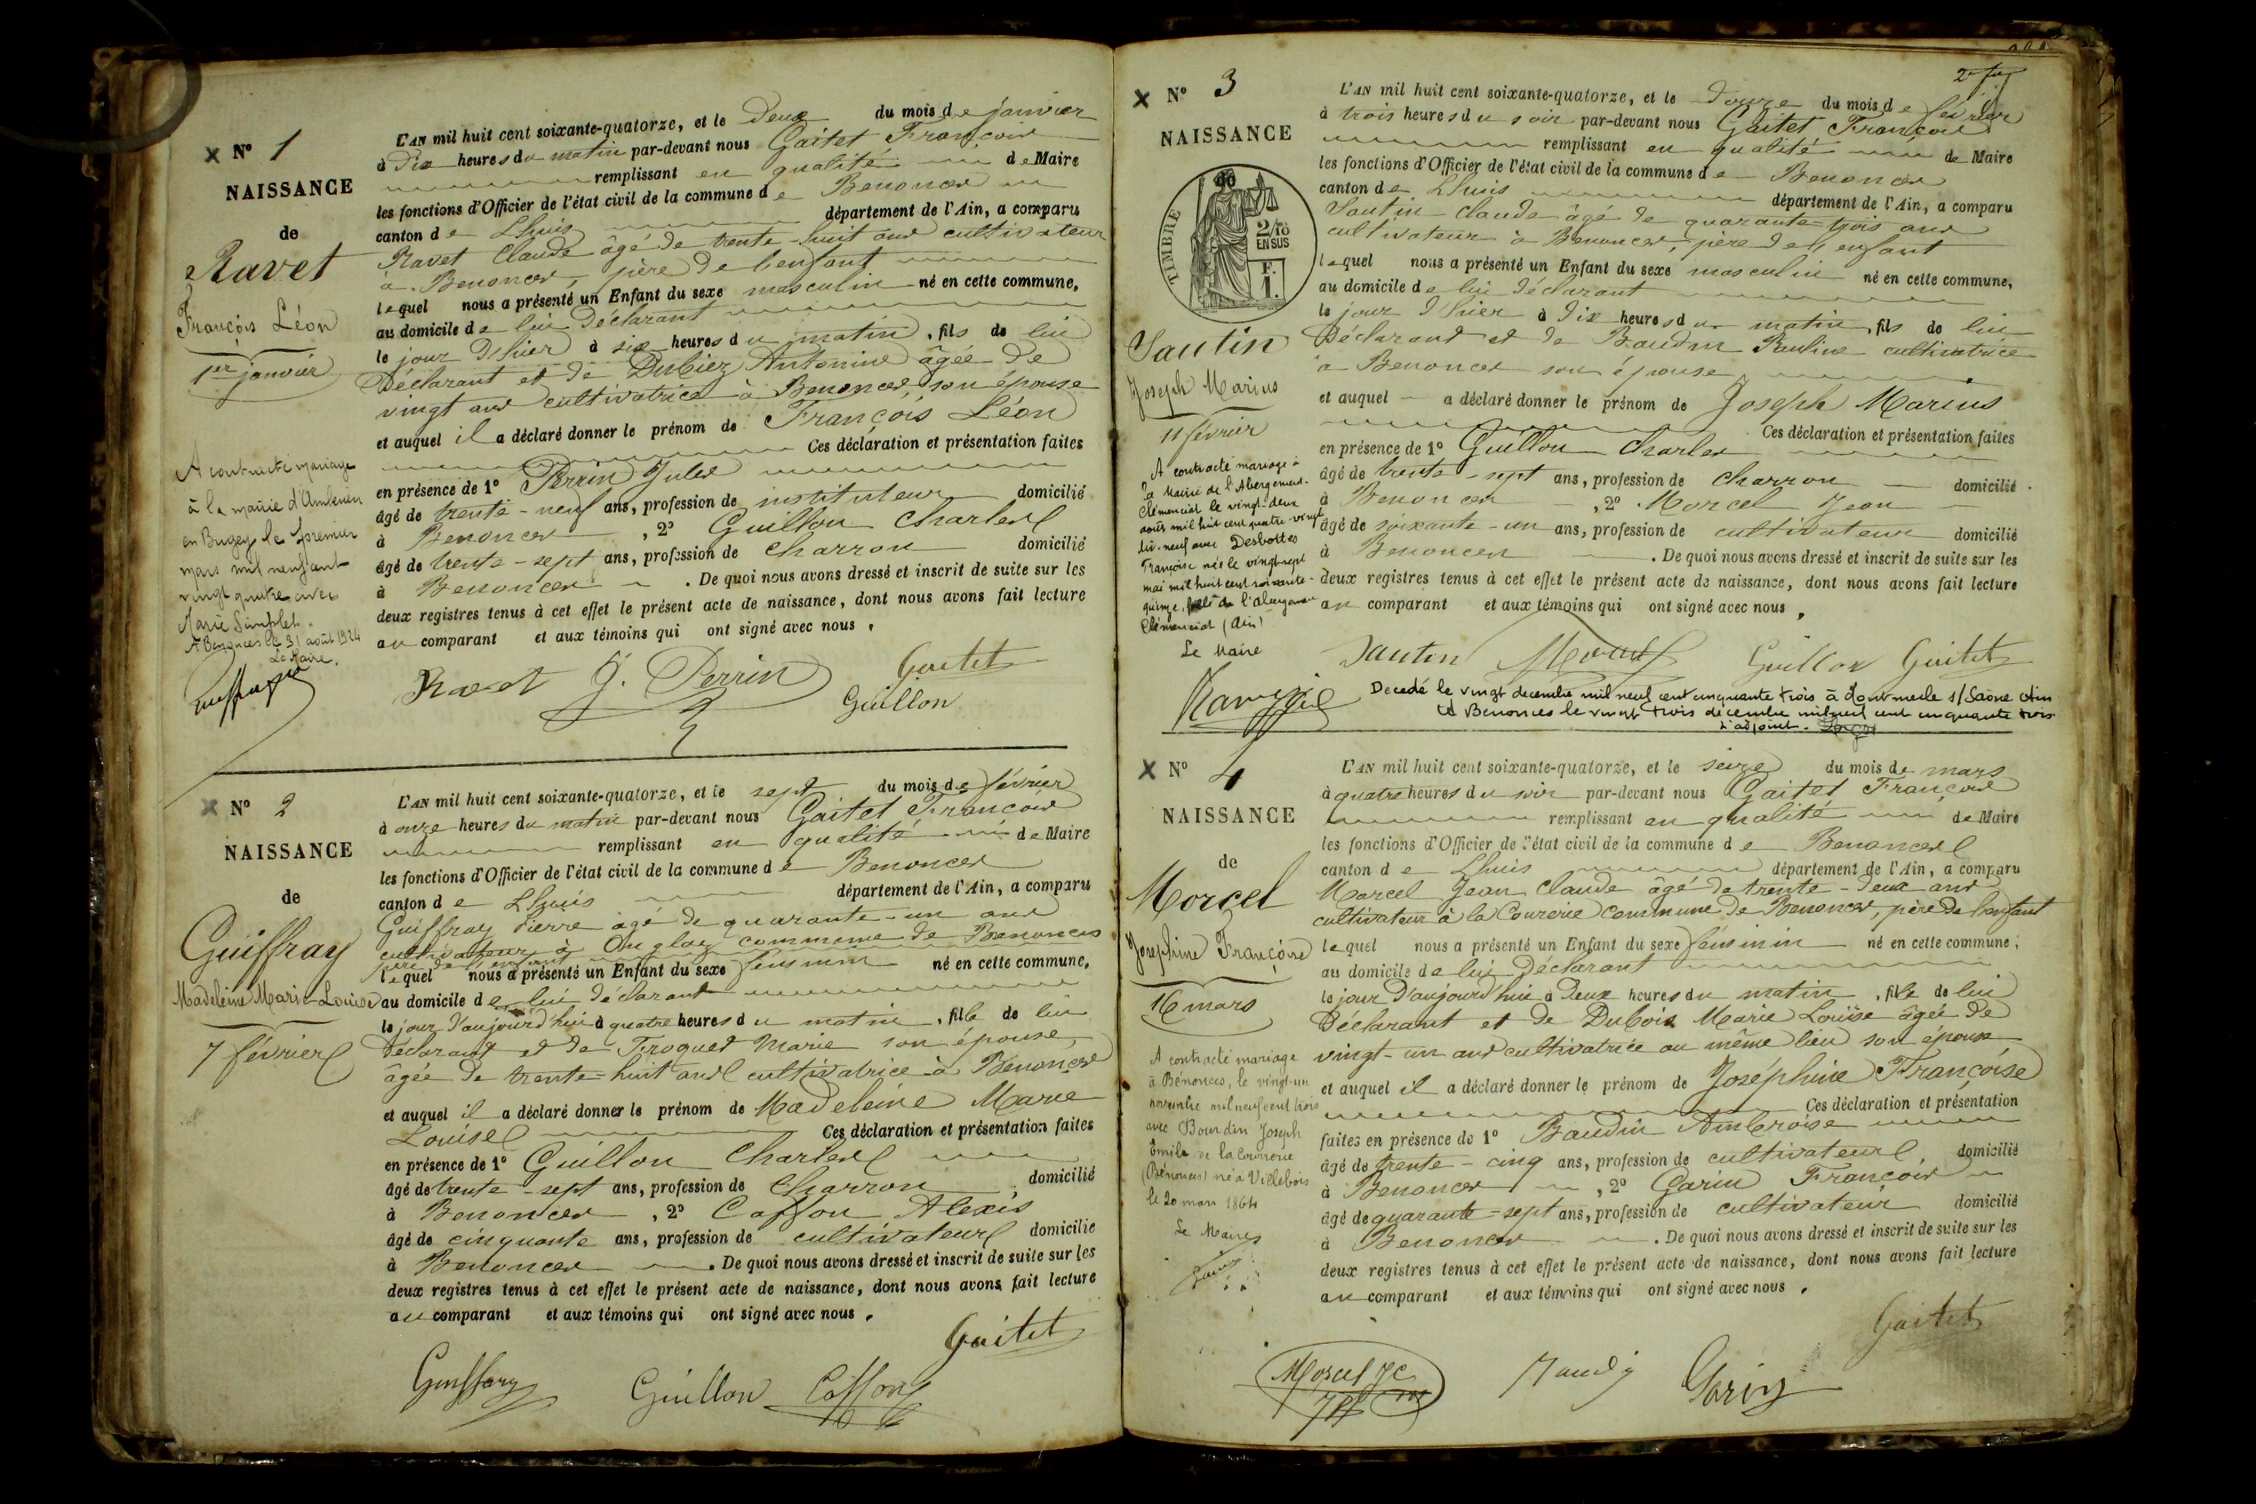 × N° 1
NAISSANCE
de
Ravet
François Léon
1er janvier
A contracté mariage
à la mairie d'Ambérieu
en Bugey le premier
mars mil neuf cent
vingt quatre avec
Marie Simplet.
A Bénonces le 31 août 1924
Le Maire.
L'AN mil huit cent soixante-quatorze, et le Deux du mois de janvier
à Dix heures du matin par-devant nous Gaitet François
remplissant en qualité de Maire
les fonctions d'Officier de l'état civil de la commune de Benonces
canton de Lhuis département de l'Ain, a comparu
Ravet Claude âgé de trente-huit ans cultivateur
à Benonces, père de l'enfant
lequel nous a présenté un Enfant du sexe masculin né en cette commune,
au domicile de lui Déclarant
le jour D'hier à six heures du matin, fils de lui
Déclarant et de Dubiez Antonine âgée de
vingt ans cultivatrice à Benonces, son épouse
et auquel il a déclaré donner le prénom de François Léon
Ces déclaration et présentation faites
en présence de 1° Perrin Jules
âgé de trente-neuf ans, profession de instituteur domicilié
à Benonces, 2° Guillon Charles
âgé de trente-sept ans, profession de charron domicilié
à Benonces. De quoi nous avons dressé et inscrit de suite sur les
deux registres tenus à cet effet le présent acte de naissance, dont nous avons fait lecture
au comparant et aux témoins qui ont signé avec nous.
Ravet J. Perrin Gaitet
Guillon
× N° 2
NAISSANCE
de
Guiffray
Madeleine Marie-Louise
7 février
L'AN mil huit cent soixante-quatorze, et le sept du mois de février
à onze heures du matin par-devant nous Gaitet François
remplissant en qualité de Maire
les fonctions d'Officier de l'état civil de la commune de Benonces
canton de Lhuis département de l'Ain, a comparu
Guiffray Pierre âgé de quarante-un ans
cultivateur à Onglas commune de Benonces
père de l'enfant
lequel nous a présenté un Enfant du sexe féminin né en cette commune,
au domicile de lui déclarant
le jour D'aujourd'hui à quatre heures du matin, fille de lui
Déclarant et de Froquet Marie son épouse,
âgée de trente-huit ans cultivatrice à Benonces
et auquel il a déclaré donner le prénom de Madeleine Marie
Louise Ces déclaration et présentation faites
en présence de 1° Guillon Charles
âgé de trente-sept ans, profession de Charron, domicilié
à Benonces, 2° Caffon Alexis
âgé de cinquante ans, profession de cultivateur domicilié
à Benonces. De quoi nous avons dressé et inscrit de suite sur les
deux registres tenus à cet effet le présent acte de naissance, dont nous avons fait lecture
au comparant et aux témoins qui ont signé avec nous.
Gaitet
Guiffray Guillon Caffon
× N° 3
NAISSANCE
TIMBRE
2/10
EN SUS
F.
1.
Santin
Joseph Marius
11 février
A contracté mariage à
la Mairie de l'Abergement-
Clémenciat le vingt-deux
août mil huit cent quatre-vingt
dix-neuf avec Desbottes
Françoise née le vingt-sept
mai mil huit cent soixante-
quinze, fille de l'Abergement
Clémenciat (Ain)
Le Maire
2e
L'AN mil huit cent soixante-quatorze, et le Douze du mois de février
à trois heures du soir par-devant nous Gaitet François
remplissant en qualité de Maire
les fonctions d'Officier de l'état civil de la commune de Benonces
canton de Lhuis département de l'Ain, a comparu
Santin Claude âgé de quarante-trois ans
cultivateur à Benonces, père de l'enfant
lequel nous a présenté un Enfant du sexe masculin né en cette commune,
au domicile de lui déclarant
le jour D'hier à Dix heures du matin, fils de lui
Déclarant et de Baudin Pauline cultivatrice
à Benonces son épouse
et auquel a déclaré donner le prénom de Joseph Marius
Ces déclaration et présentation faites
en présence de 1° Guillon Charles
âgé de trente-sept ans, profession de charron domicilié
à Benonces, 2° Morcel Jean
âgé de soixante-un ans, profession de cultivateur domicilié
à Benonces. De quoi nous avons dressé et inscrit de suite sur les
deux registres tenus à cet effet le présent acte de naissance, dont nous avons fait lecture
au comparant et aux témoins qui ont signé avec nous.
Santin Morcel Guillon Gaitet
Décédé le vingt décembre mil neuf cent cinquante trois à Montmerle s/Saône Ain
A Benonces le vingt trois décembre mil neuf cent cinquante trois
L'adjoint.
× N° 4
NAISSANCE
de
Morcel
Joséphine Françoise
16 mars
A contracté mariage
à Bénonces, le vingt-un
novembre mil neuf cent trois
avec Bourdin Joseph
Emile de la Courerie
(Bénonces) né à Villebois
le 20 mars 1864
Le Maire
L'AN mil huit cent soixante-quatorze, et le seize du mois de mars
à quatre heures du soir par-devant nous Gaitet François
remplissant en qualité de Maire
les fonctions d'Officier de l'état civil de la commune de Benonces
canton de Lhuis département de l'Ain, a comparu
Morcel Jean Claude âgé de trente-deux ans
cultivateur à la Courerie commune de Benonces, père de l'enfant
lequel nous a présenté un Enfant du sexe féminin né en cette commune;
au domicile de lui Déclarant
le jour D'aujourd'hui à Deux heures du matin, fille de lui
Déclarant et de Dubois Marie Louise âgée de
vingt-un ans cultivatrice au même lieu son épouse
et auquel il a déclaré donner le prénom de Joséphine Françoise
Ces déclaration et présentation
faites en présence de 1° Baudin Ambroise
âgé de trente-cinq ans, profession de cultivateur domicilié
à Benonces, 2° Garin François
âgé de quarante-sept ans, profession de cultivateur domicilié
à Benonces. De quoi nous avons dressé et inscrit de suite sur les
deux registres tenus à cet effet le présent acte de naissance, dont nous avons fait lecture
au comparant et aux témoins qui ont signé avec nous.
Gaitet
Morcel JC Baudin Garin